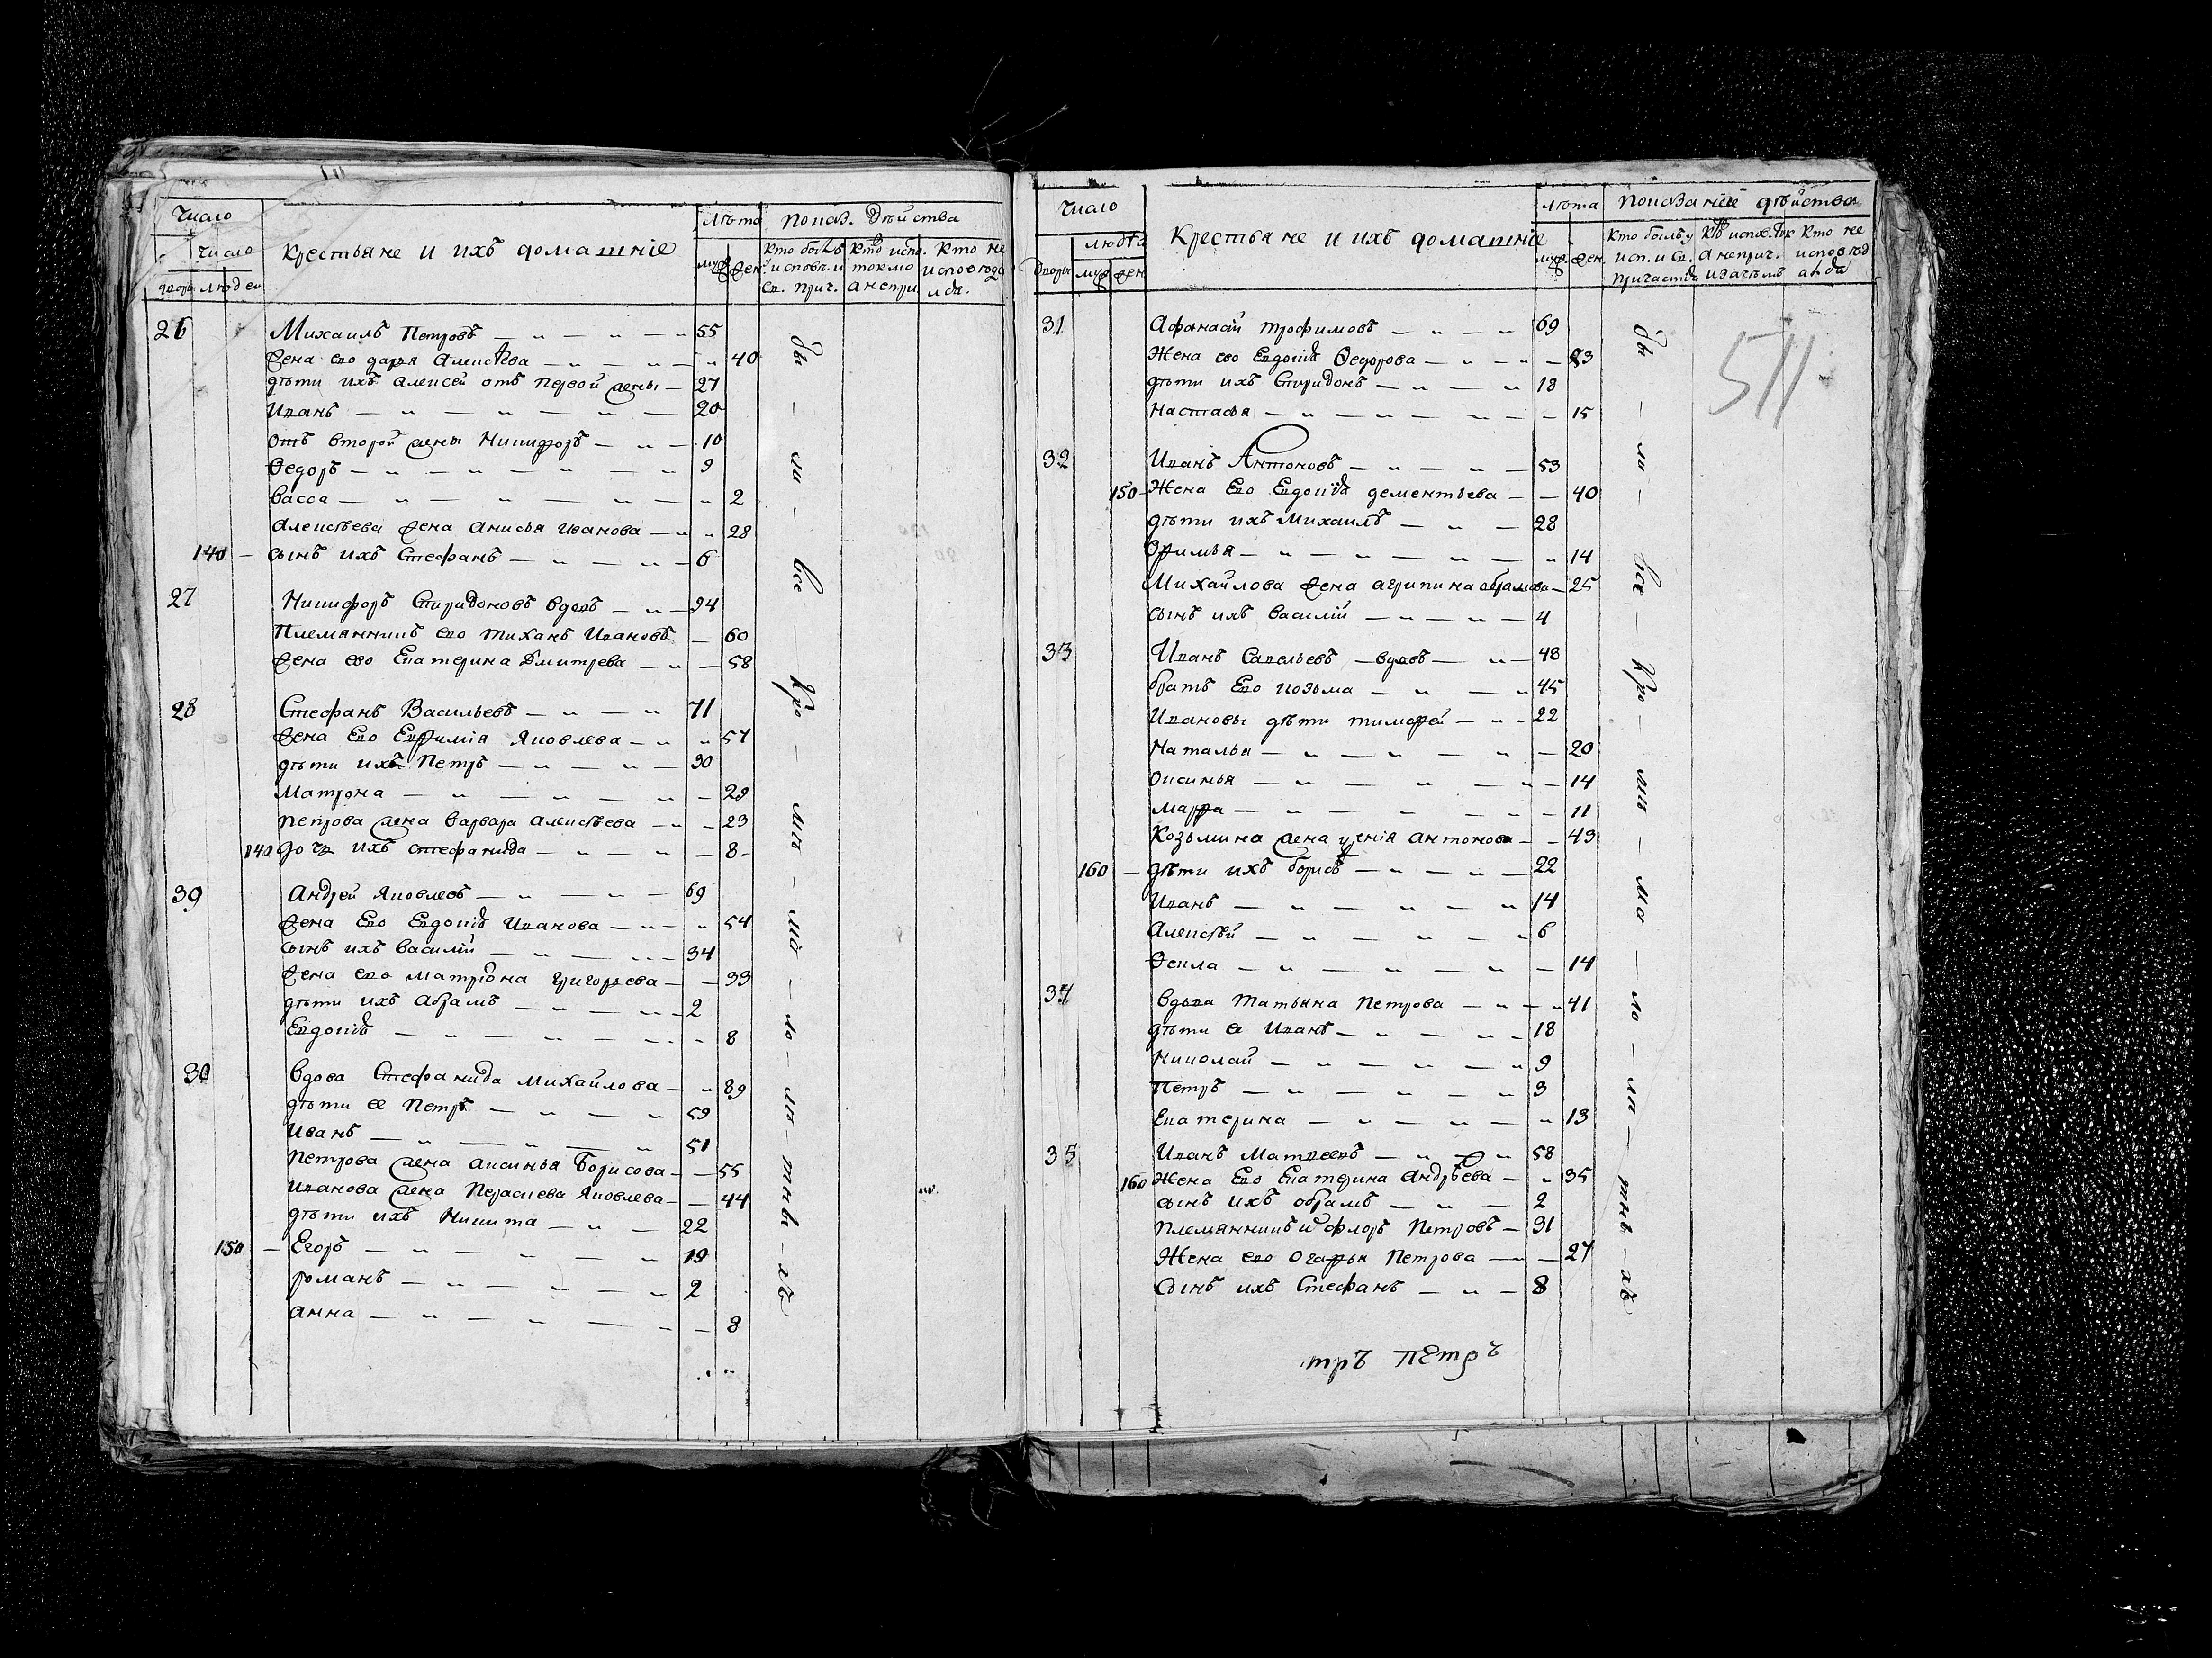 Число
Число
дворъ людей
Крестьяне и ихъ домашнiе
Лѣта
муж жен
Показ. дѣйства
Кто былъ у исповѣ. и св. прич.
Кто испо. токмо а непри
Кто не исповѣда лся.
26 Михаилъ Петровъ 55
жена ево дарья Алексѣева 40
дѣти ихъ Алексей отъ первой жены 27
Иванъ 20
отъ второй жены Никифоръ 10
Ѳедоръ 9
Васса 2
Алексѣева жена Анисья Иванова 28
140 сынъ ихъ Стефанъ 6
27 Никифоръ Спиридоновъ вдовъ 94
Племянникъ ево Тиханъ Ивановъ 60
жена ево Екатерина Дмитрева 58
28 Стефанъ Васильевъ 71
жена Ево Евфимiя Яковлева 57
дѣти ихъ Петръ 30
Матрона 29
Петрова жена Варвара Алексѣева 23
140 дочь ихъ Стефанида 8
39 Андрей Яковлевъ 69
жена Ево Евдокiя Иванова 54
сынъ ихъ Василiй 34
жена ево Матрiона Григорьева 33
дѣти ихъ Абрамъ 2
Евдокiя 8
30 Вдова Стефанида Михайлова 89
дѣти ее Петръ 59
Иванъ 51
Петрова жена Аксинья Борисова 55
Иванова жена Параскева Яковлева 44
дѣти ихъ Никита 22
150 Егоръ 19
Романъ 2
Анна 8
бы - ли - все - кро - мѣ - мa - ло - лѣ - тнѣ - хъ
Число
людѣй
Дворы муж жен
Крестьяне и ихъ домашнiе
Лѣта
муж. жен.
Показанiе дѣйства
Кто былъ у исп. и св. причастiя
Кто испов. ток а неприч. и за чѣмъ
Кто не исповѣд ался
511
31 Афанасiй Трофимовъ 69
Жена ево Евдокiя Ѳедорова 83
дѣти ихъ Спиридонъ 18
Настасья 15
32 Иванъ Антоновъ 53
150 Жена Ево Евдокiя дементьева 40
дѣти ихъ Михаилъ 28
Офимья 14
Михайлова жена агрипина абрамова 25
сынъ ихъ Василiй 4
33 Иванъ Савельевъ вдовъ 48
братъ Ево козьма 45
Ивановы дѣти тимофей 22
Наталья 20
Оксинья 14
Марфа 11
Козьмина жена антонова 43
160 дѣти ихъ борисъ 22
Иванъ 14
Алексѣй 6
Ѳекла 14
34 Вдова Татьяна Петрова 41
дѣти ее Иванъ 18
Николай 9
Петръ 3
Екатерина 13
35 Иванъ Матвеевъ 58
160 Жена Ево Екатерина Андрѣева 35
сынъ ихъ абрамъ 2
племянникъ флоръ Петровъ 31
Жена ево Огафья Петрова 27
Сынъ ихъ Стефанъ 8
бы - ли - все - кро - мѣ - ма - ло - лѣ - тнѣ - хъ
тръ ПЕтръ